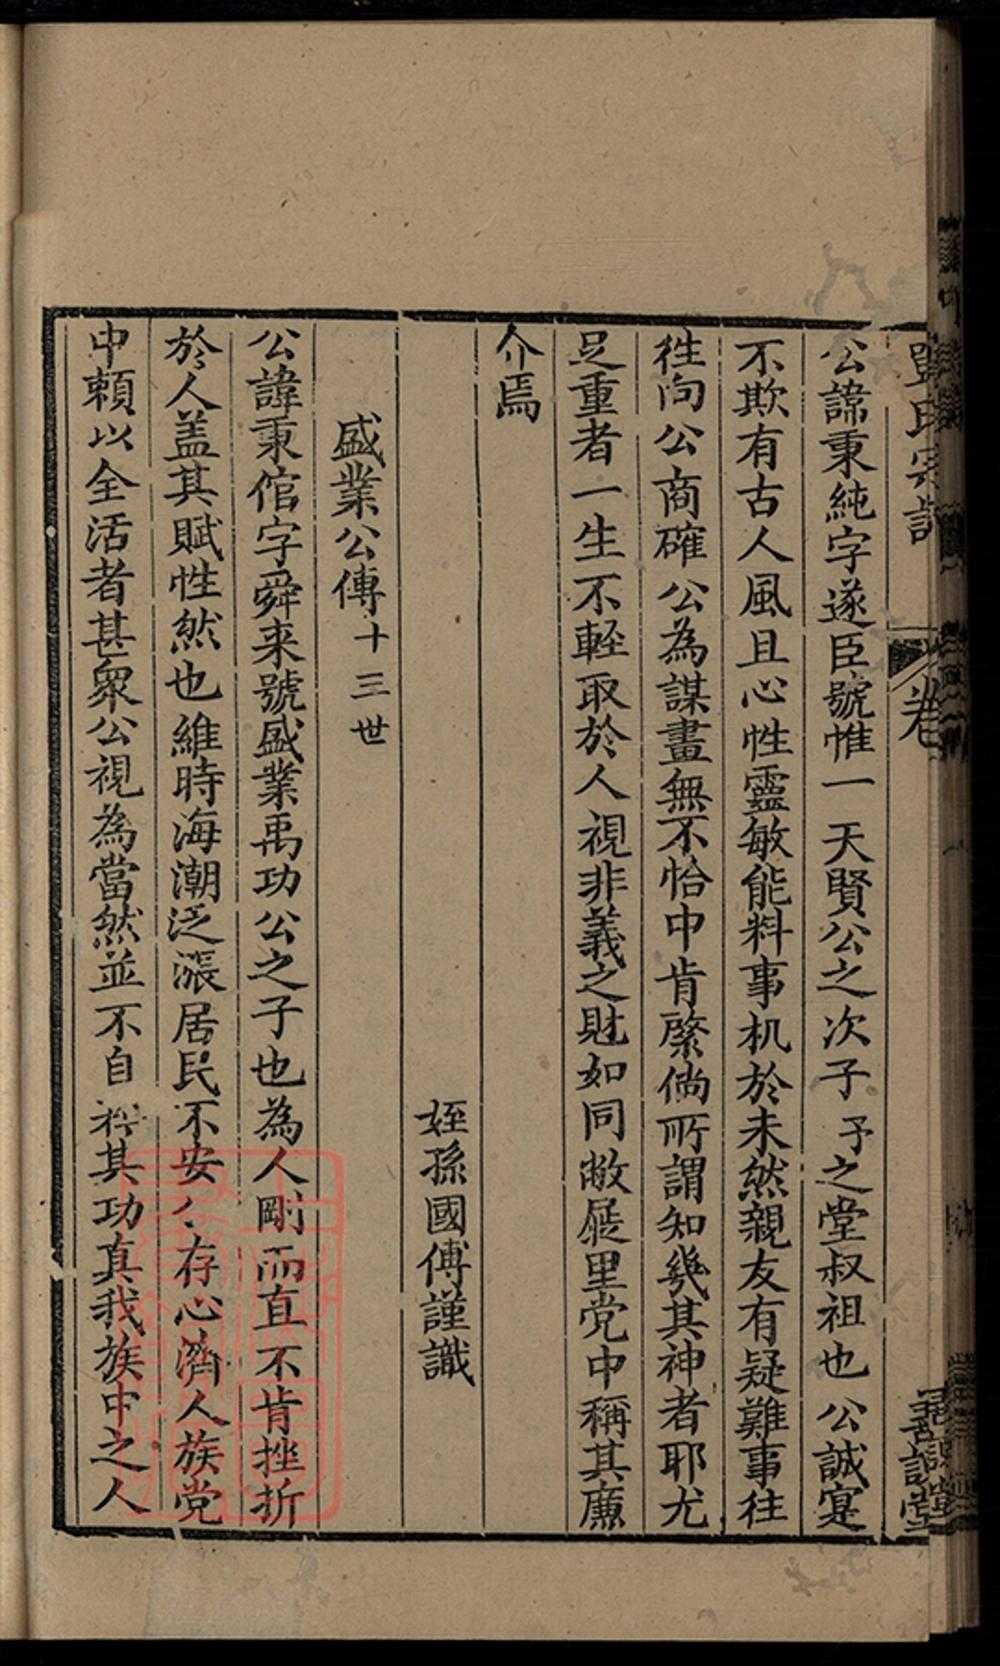 氏宗譜 卷 一 善譜堂
公諱秉純字遂臣號惟一天賢公之次子予之堂叔祖也公誠寔
不欺有古人風且心性靈敏能料事机於未然親友有疑難事往
徃向公商確公為謀畫無不恰中肯綮倘所謂知幾其神者耶尤
足重者一生不輕取於人視非義之財如同敝屣里党中稱其廉
介焉
姪孫國傅謹識
盛業公傳十三世
公諱秉倌字舜来號盛業禹功公之子也為人剛而直不肯挫折
於人盖其賦性然也維時海潮泛漲居民不安公存心濟人族党
中頼以全活者甚衆公視為當然並不自矜其功真我族中之人